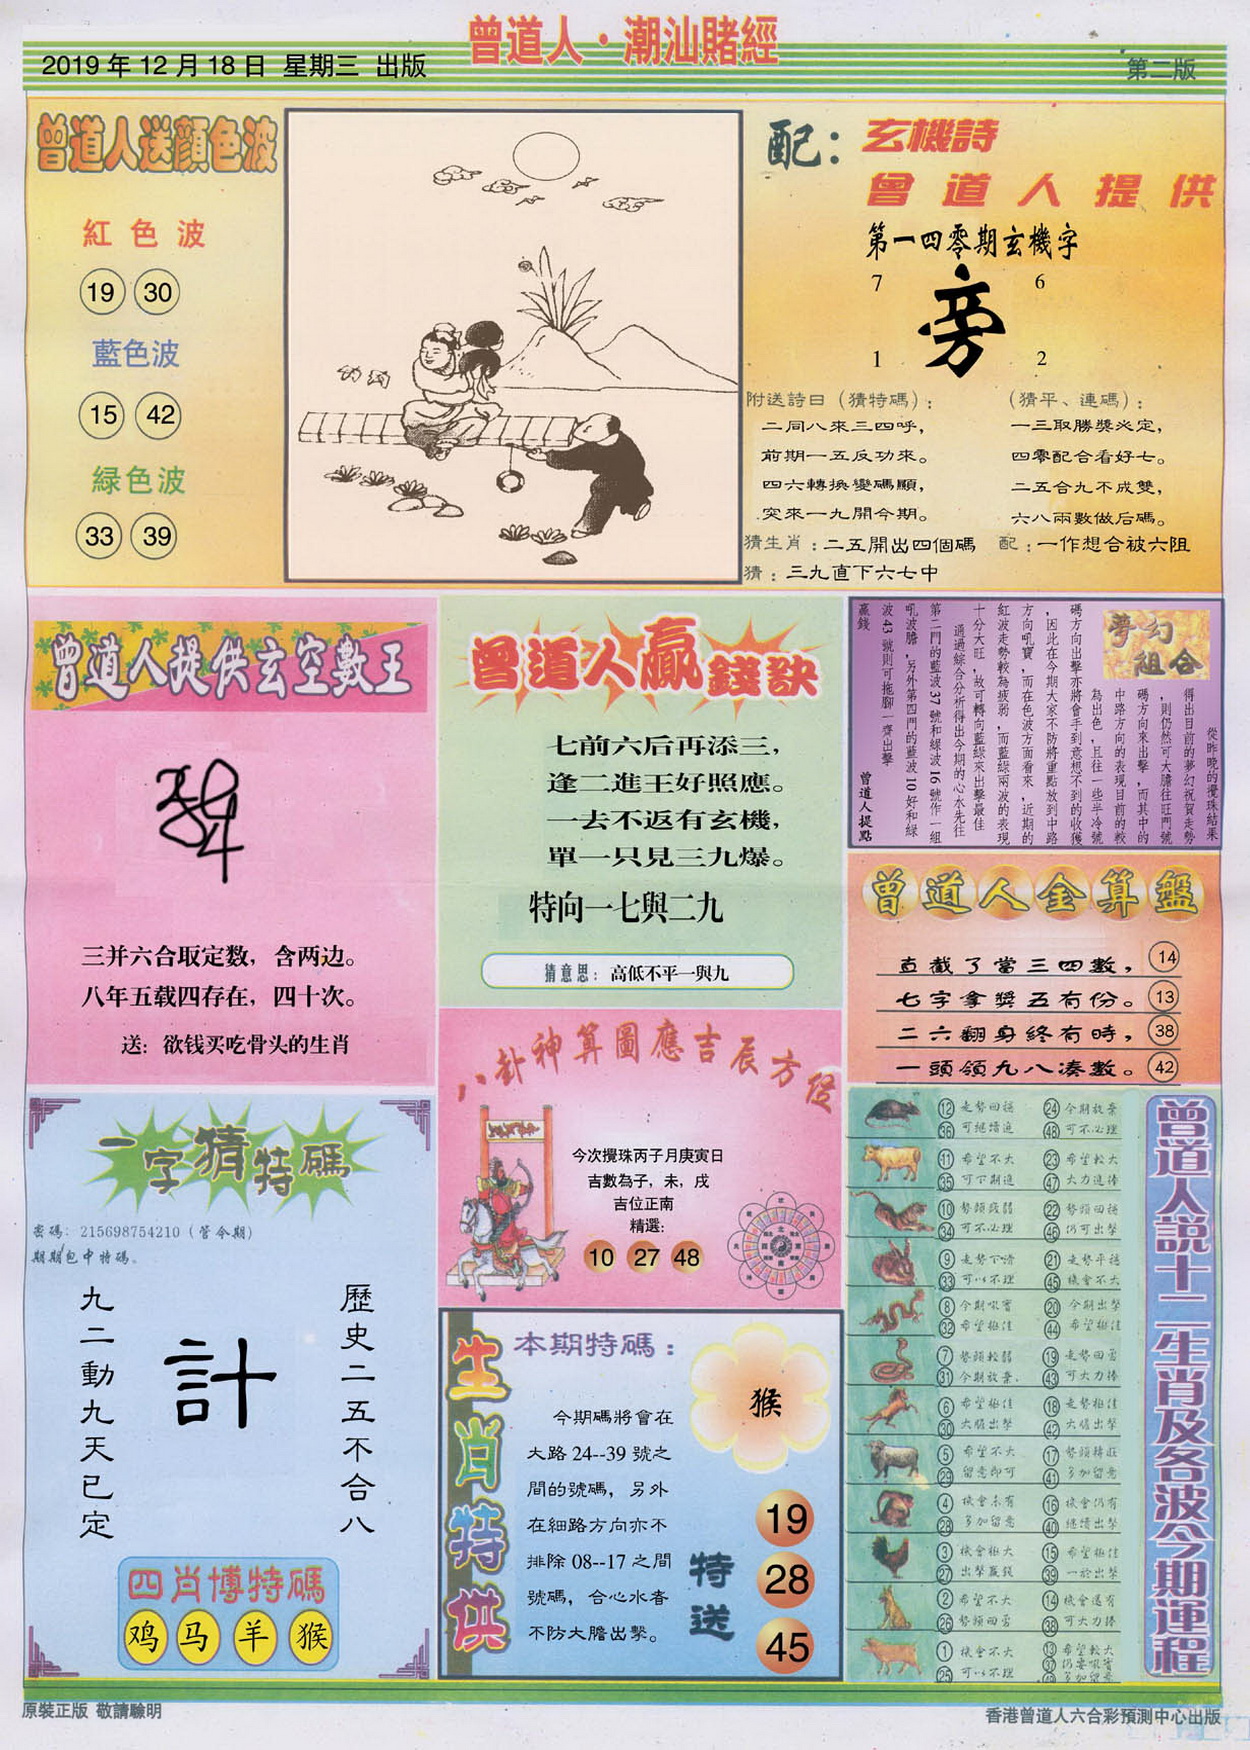 曾道人·潮汕賭經
2019年12月18日 星期三 出版
第二版
曾道人送顔色波
紅色波
19 30
藍色波
15 42
緑色波
33 39
配：玄機詩
曾道人提供
第一四零期玄機字
7 6
旁
1 2
附送詩曰（猜特碼）：
二同八來三四呼，
前期一五反功來。
四六轉換變碼顯，
突來一九開今期。
（猜平、連碼）：
一三取勝獎必定，
四零配合看好七。
二五合九不成雙，
六八兩數做后碼。
猜生肖：二五開出四個碼 配：一作想合被六阻
猜：三九直下六七中
曾道人提供玄空數王
三并六合取定数，含两边。
八年五载四存在，四十次。
送：欲钱买吃骨头的生肖
曾道人贏錢訣
七前六后再添三，
逢二進王好照應。
一去不返有玄機，
單一只見三九爆。
特向一七與二九
猜意思：高低不平一與九
夢幻
組合
從昨晚的攪珠結果
得出目前的夢幻祝賀走勢
，則仍然可大膽往旺門號
碼方向來出擊，而其中的
中路方向的表現目前的較
為出色，且往一些半冷號
碼方向出擊亦將會手到意想不到的收獲
，因此在今期大家不防將重點放到中路
方向吼寶，而在色波方面看來，近期的
紅波走勢較為疲弱，而藍緑兩波的表現
十分大旺，故可轉向藍緑來出擊最佳
通過綜合分析得出今期的心水先往
第二門的藍波37號和緑波16號作一組
吼波膽，另外第四門的藍波10好和緑
波43號則可拖腳一齊出擊
贏錢
曾道人提點
曾道人金算盤
直截了當三四數，14
七字拿獎五有份。13
二六翻身終有時，38
一頭領九八凑數。42
八卦神算圖應吉辰方位
今次攪珠丙子月庚寅日
吉數為子，未，戌
吉位正南
精選：
10 27 48
一字猜特碼
密碼：215698754210（管今期）
期期包中特碼。
歷史二五不合八
計
九二動九天已定
四肖博特碼
鸡 马 羊 猴
生肖特供
本期特碼：
猴
今期碼將會在
大路24--39號之
間的號碼，另外
在細路方向亦不
排除08--17之間
號碼，合心水者
不防大膽出擊。
特送
19
28
45
曾道人説十二生肖及各波今期運程
12 走勢回穩 24 今期放棄
36 可繼續追 48 可不必理
11 希望不大 23 希望較大
35 可下期追 47 大力追捧
10 勢頭疲弱 22 勢頭回穩
34 可不必理 46 仍可出擊
9 走勢下滑 21 走勢平穩
33 可以不理 45 機會不大
8 今期吼寶 20 今期出擊
32 希望極佳 44 希望極佳
7 勢頭較弱 19 走勢回雲
31 今期放棄. 43 可大力捧
6 希望極佳 18 走勢極佳
30 大膽出擊 42 大膽出擊
5 希望不大 17 勢頭轉旺
29 留意即可 41 多加留意
4 機會未有 16 機會仍有
28 多加留意 40 繼續出擊
3 機會極大 15 希望極佳
27 出擊贏錢 39 一於出擊
2 希望不大 14 機會還有
26 勢頭回雲 38 可大力捧
1 機會不大 13 希望較大
25 可以不理 37 仍要吼寶
49 多加留意
原裝正版 敬請驗明
香港曾道人六合彩預測中心出版